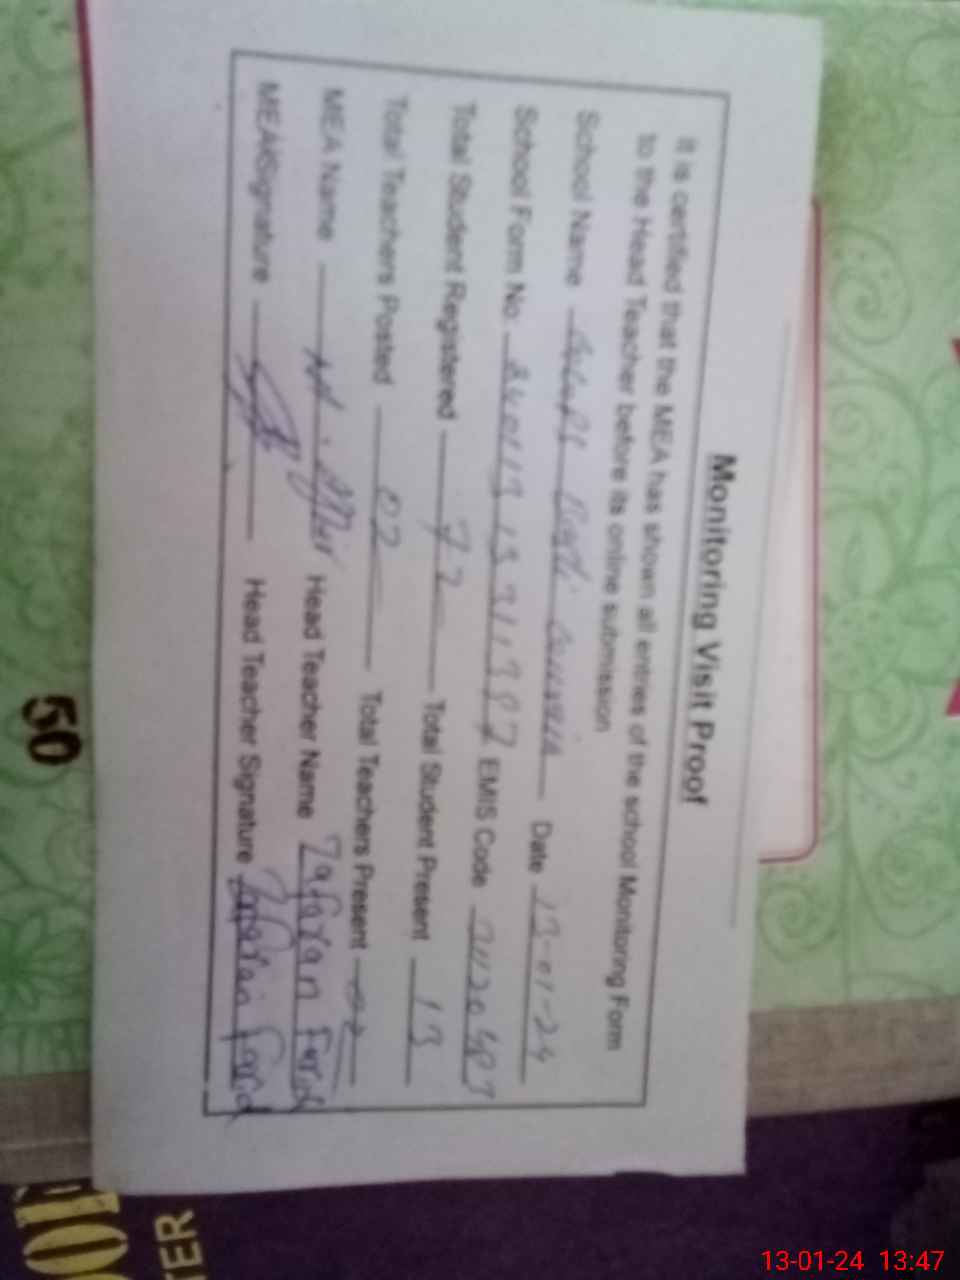 Monitoring Visit Proof
It is certified that the MEA has shown all entries of the school Monitoring Form
to the Head Teacher before its online submission
School Name Date 13-01-24
School Form No. EMIS Code
Total Student Registered 72 Total Student Present 13
Total Teachers Posted 02 Total Teachers Present 02
MEA Name Head Teacher Name Zafaran Farid
MEASignature Head Teacher Signature Zafaran Farid
50
TER
13-01-24 13:47